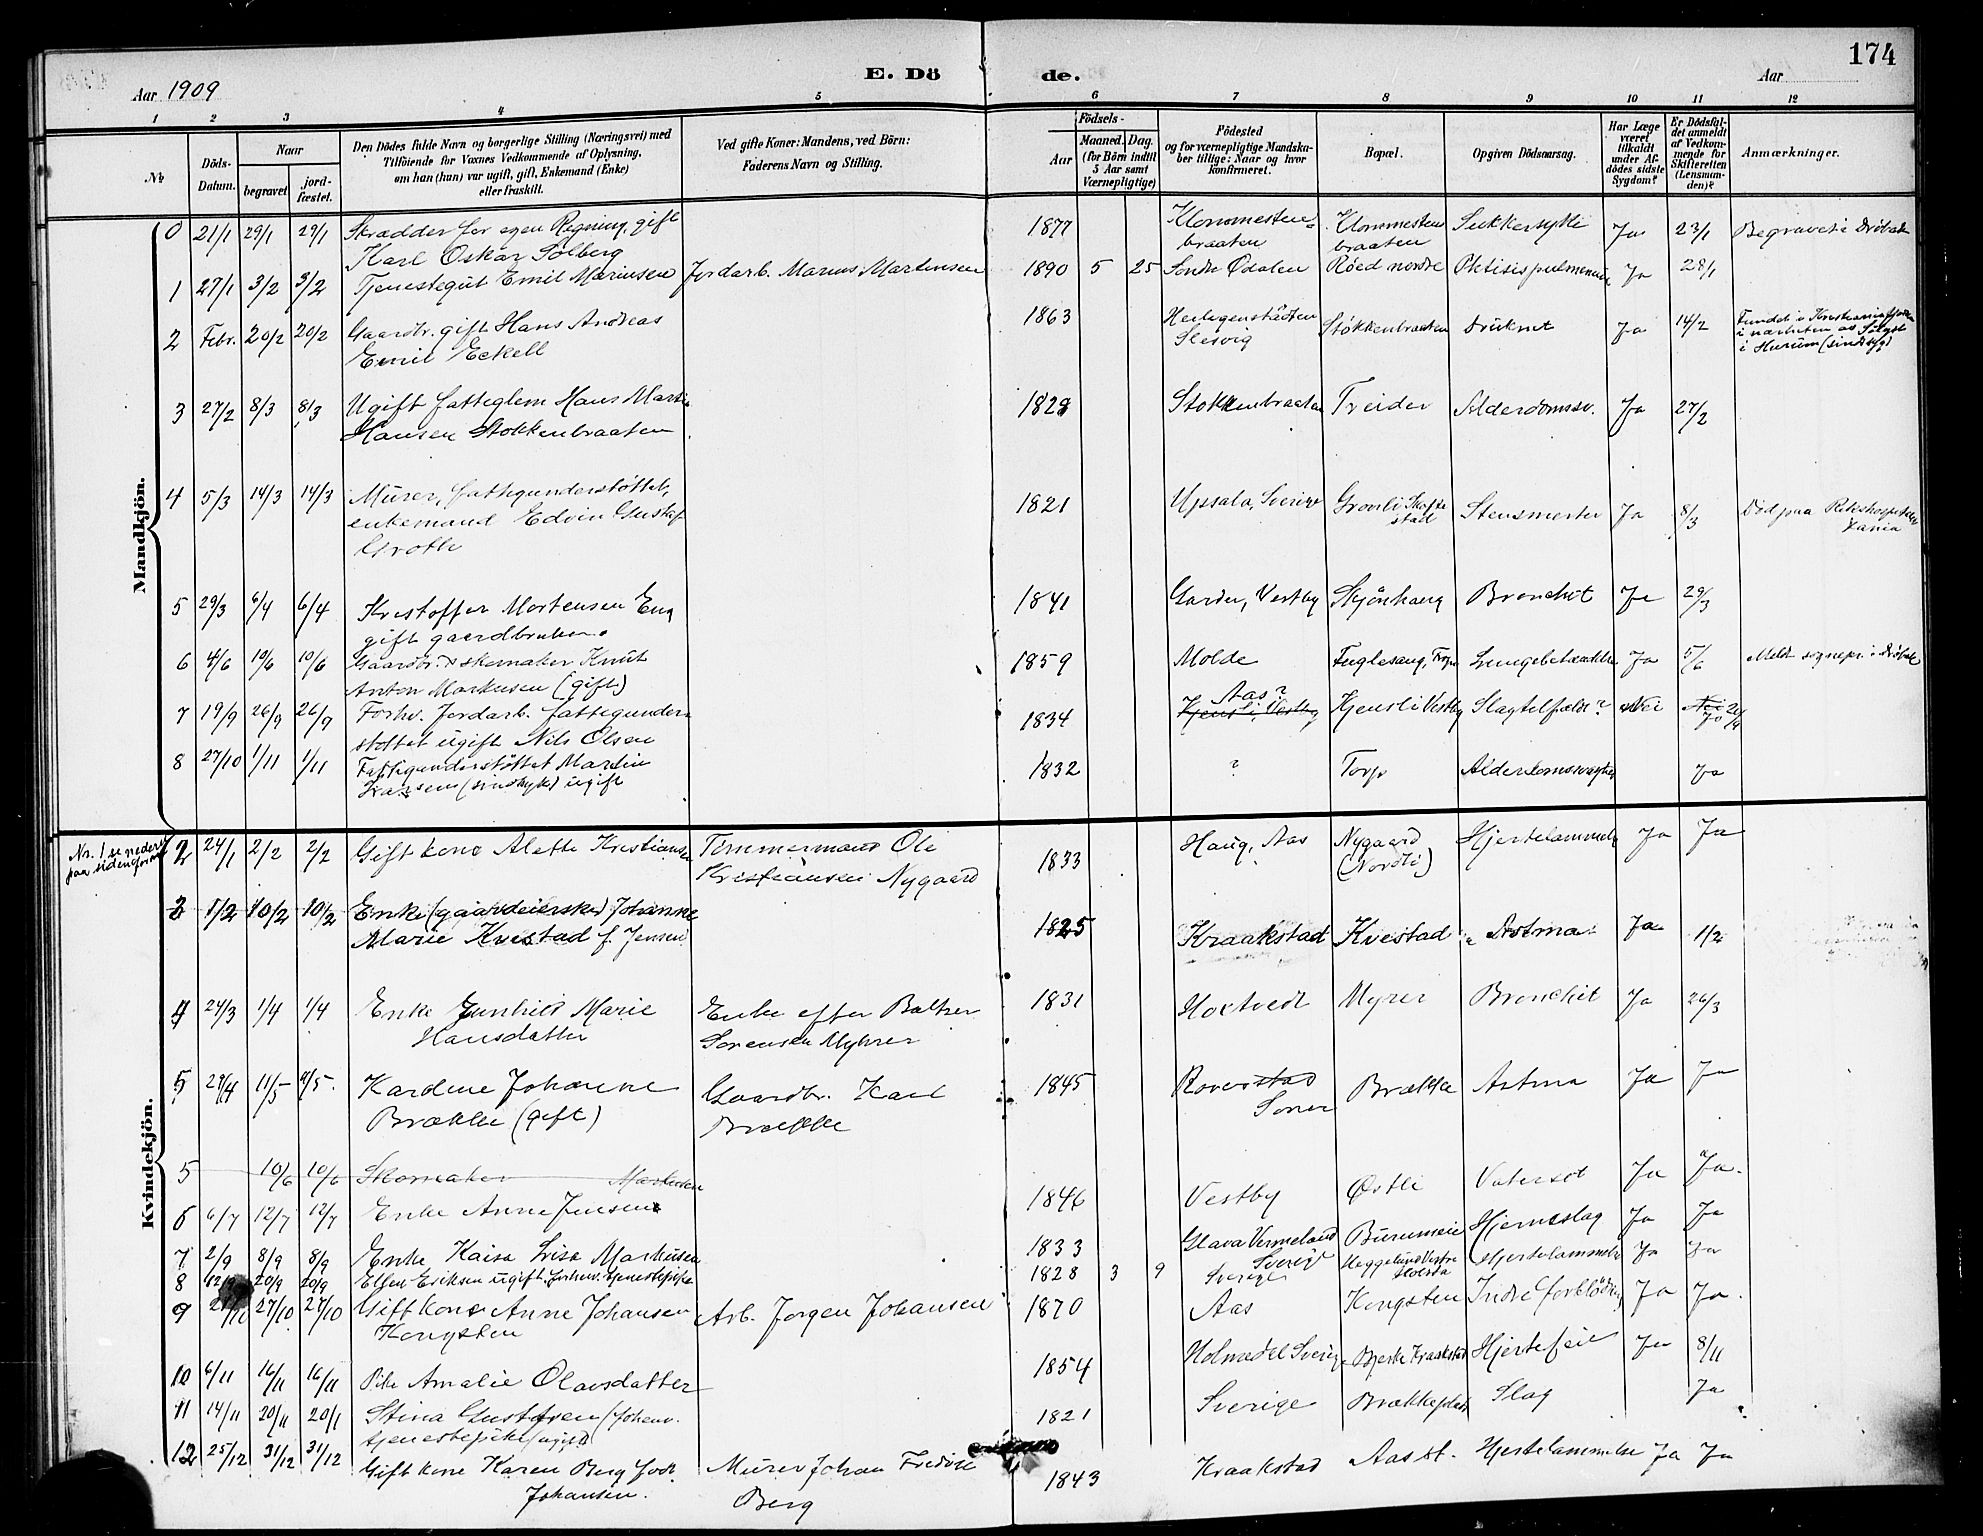 174
E. Dö de.
Aar 1909
Aar
1 2 3 4 5 6 7 8 9 10 11 12
№
Döds-Datum.
Naar
begravet
jord-fæstet.
Den Dödes fulde Navn og borgerlige Stilling (Næringsvei) med
Tilföiende for Voxnes Vedkommende af Oplysning,
om han (hun) var ugift, gift, Enkemand (Enke)
eller fraskilt.
Ved gifte Koner: Mandens, ved Börn:
Faderens Navn og Stilling.
Födsels-
Aar
Maaned. Dag.
(for Börn indtil
5 Aar samt
Værnepligtige)
Födested
og for værnepligtige Mandska-
ber tillige: Naar og hvor
konfirmeret.
Bopæl.
Opgiven Dödsaarsag.
Har Læge
været
tilkaldt
under Af-
dödes sidste
Sygdom?
Er Dödsfal-
det anmeldt
af Vedkom-
mende for
Skifteretten
(Lensman-
den)?
Anmærkninger.
Mandkjön.
0 21/1 29/1 29/1 Skrædder for egen Regning, gift Karl Oskar Solberg 1877 Klommesten-braaten Klommestenbraaten Sukkersyke Ja 23/1 Begravet i Drøbak
1 27/1 3/2 3/2 Tjenestegut Emil Marinsen Jordarb. Marius Martensen 1890 5 25 Søndr Odalen Røed nordre Ja 28/1
2 Febr. 20/2 20/2 Gaardbr. gift Hans Andreas Emil Eckell 1863 Slesvig Stokkenbraaten Druknet Ja 14/2 Fundet i Kristianiafjorden i nærheten av i Hurum (sindssyg)
3 27/2 8/3 8/3 Ugift fattiglem Hans Martin Hansen Stokkenbraaten 1828 Stokkenbraaten Treider Alderdomssv. Ja 27/2
4 5/3 14/3 14/3 Murer, fattigunderstøttet, enkemand Edvin Gustaf Groth 1821 Upsala, Sverige Stensmerter Ja 8/3 Død paa Rikshospitalet Kania
5 29/3 6/4 6/4 Kristoffer Mortensen Eng gift gaardbruker. 1841 Garder, Vestby Skjønhaug Bronchit Ja 29/3
6 4/6 10/6 10/6 Gaardbr. & skomaker Knut Anton Markusen (gift) 1859 Molde Fuglesang, Frogn Lungebetændelse Ja 5/6 Meldt sognepr. i Drøbak
7 19/9 26/9 26/9 Forhv. Jordarb. fattigunderstøttet ugift Nils Olsen 1834 Aas? Kjensli, Vestby Kjensli Vestby Slagtilfælde? Nei
8 27/10 1/11 1/11 Fattigunderstøttet Martin Hansen (sindssyk) ugift 1832 ? Torp Alderdomssvaghet Ja
Kvindekjön.
Nr. 1 se nederst paa siden foran
2 24/1 2/2 2/2 Gift kone Alette Kristiansen Tømmermand Ole Kristiansen Nygaard 1833 Haug, Aas Nygaard (Nordli) Hjertelammelse Ja Ja
3 1/2 10/2 10/2 Enke (gaardeierske) Johanne Marie Kvestad f. Jensen 1825 Kraakstad Kvestad Astma Ja 1/2
4 24/3 1/4 1/4 Enke Gunhild Marie Hansdatter Enke efter Baltzer Sørensen Myhrer 1831 Hoxtvedt Myrer Bronchit Ja 26/3
5 29/4 11/5 11/5 Kardine Johanne Brække (gift) Gaardbr. Karl Brække 1845 Roverstad Soner Brække Astma Ja Ja
5 10/6 10/6 Skomaker Markusen
6 6/7 12/7 12/7 Enke Anne Jensen 1846 Vestby Østli Vatersot Ja Ja.
7 2/9 8/9 8/9 Enke Kaisa Lisa Markusen 1833 Glava Vermeland Sverig Hjerneslag Ja Ja
8 12/9 20/9 20/9 Ellen Eriksen ugift, forhenv. tjenestepike 1828 3 9 Sverige Heggelund Vestre Hjertelammelse Ja Ja
9 27/10 27/10 Gift kone Anne Johansen Kongsten Arb. Jørgen Johansen 1870 Aas Kongsten Indre forblødn. Ja Ja.
10 6/11 16/11 16/11 Pike Amalie Olavsdatter 1854 Holmedal Sverige Bjerke Kraakstad Hjertefeil Ja 8/11
11 14/11 20/11 20/1 Stina Gustafsen (forhenv. tjenestepike (ugift) 1821 Sverige Slag Ja
12 25/12 31/12 31/12 Gift kone Karen Berg født Johansen. Murer Johan Fredrik Berg 1843 Kraakstad Aas st. Hjertelammelse Ja Ja